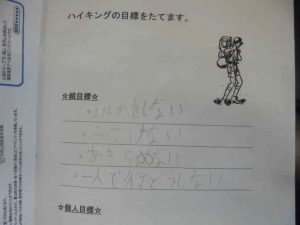 ハイキングの目標をたてます。
☆組目標☆
・けがをしない
・ふざけない
・あきらめない
・一人で行どうしない
☆個人目標☆